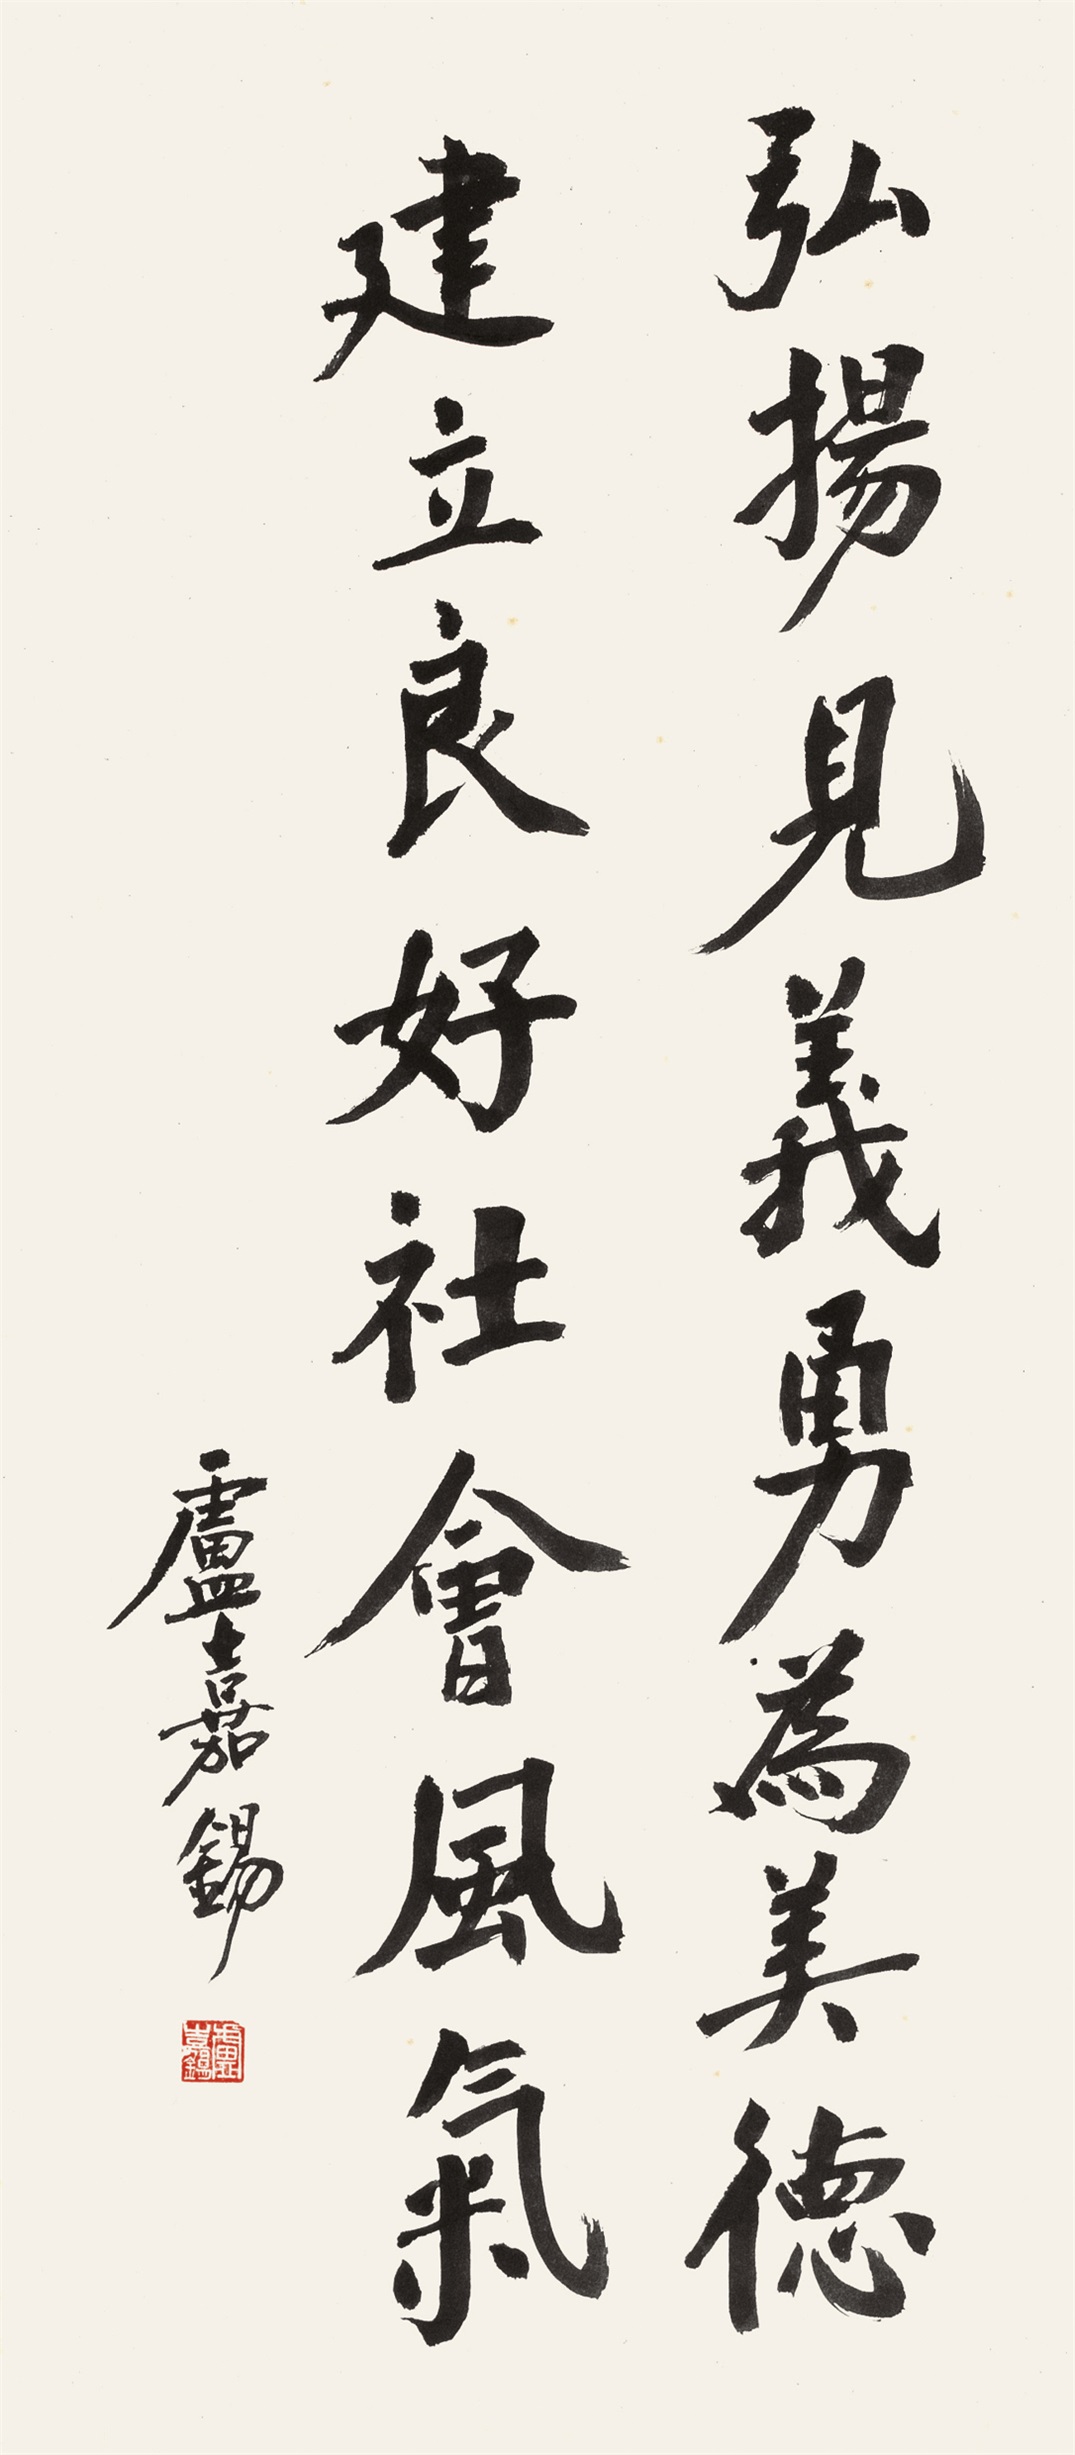 弘揚見義勇為美德
建立良好社會風氣
盧嘉錫
盧嘉錫